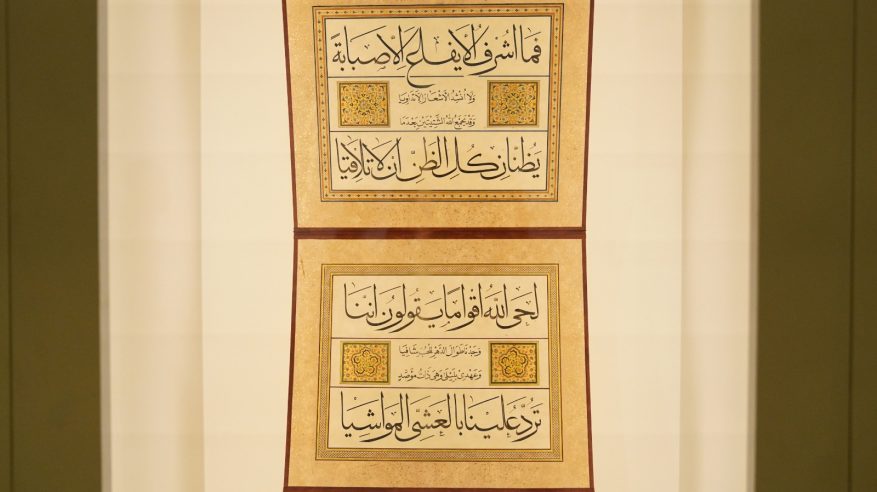 فما اشرف الايفاع الا صبابة
ولا انشد الاشعار الا تداويا
وقد يجمع الله الشتيتين بعدما
يظنان كل الظن ان لا تلاقيا
لحى الله اقواما يقولون اننا
وجدنا طوال الدهر للحب شافيا
وعهدي بليلى وهي ذات موصد
ترد علينا بالعشي المواشيا